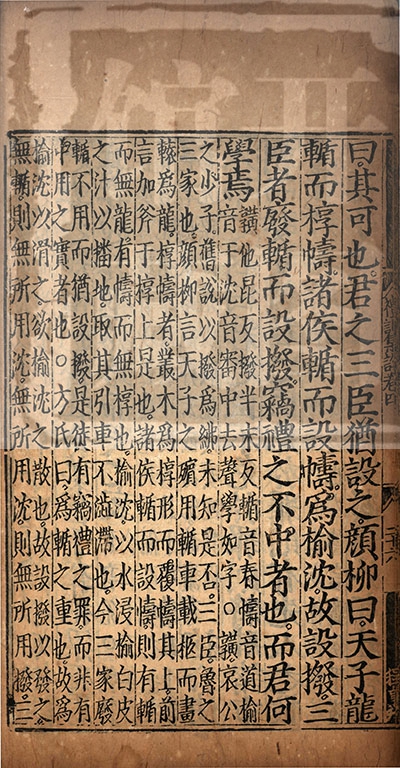 曰其可也君之三臣猶設之顔柳曰天子龍
輴而椁幬諸侯輴而設幬爲榆沈故設撥三
臣者廢輴而設撥竊禮之不中者也而君何
學焉
䵍他昆反撥半末反輴音春幬音道榆
音于沈音審中去聲學如字○䵍哀公
之少子舊說以撥爲紼未知是否三臣魯之
三家也顔柳言天子之殯用輴車載柩而畫
轅爲龍椁幬者叢木爲椁形而覆幬其上前
言加斧于椁上是也諸侯輴而設幬則有輴
而無龍有幬而無椁也榆沈以水浸榆白皮
之汁以播地取其引車不澁滯也今三家廢
輴不用而猶設撥是徒有竊禮之罪而非有
中用之實者也○方氏曰爲輴之重也故爲
榆沈以滑之欲榆沈之散也故設撥以發之
無輴則無所用沈無所用沈則無所用撥三